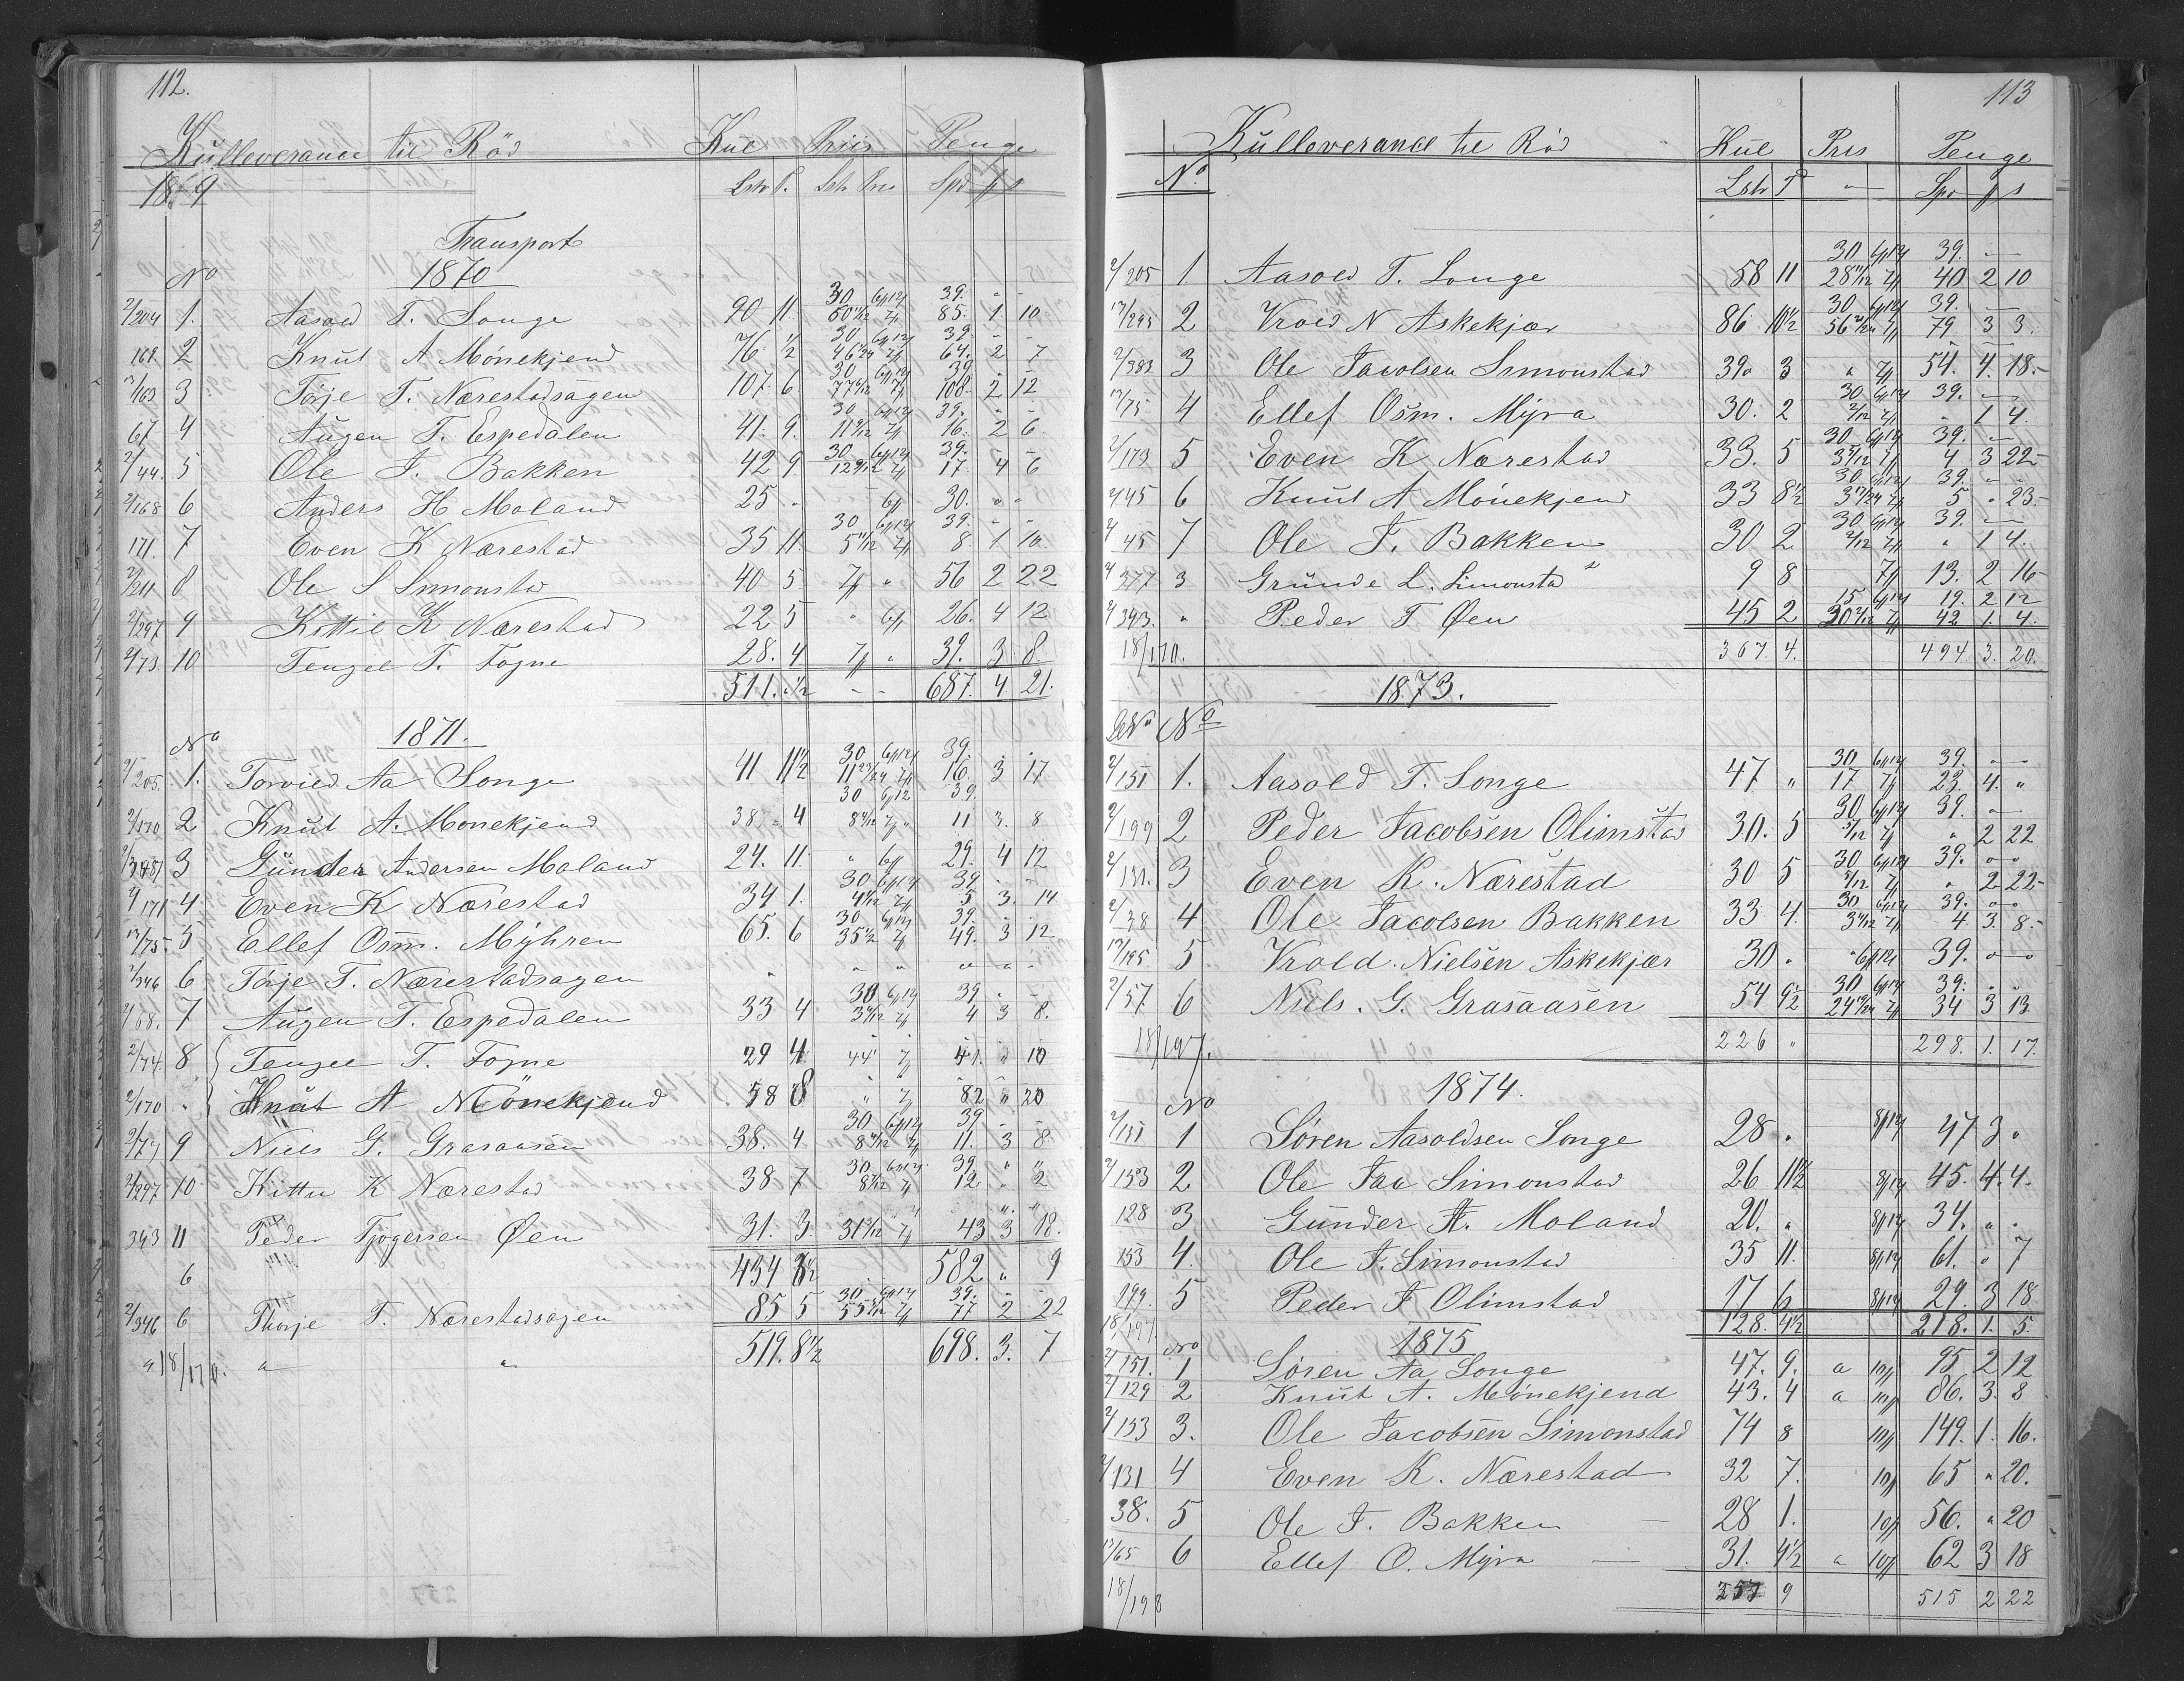 112.
Kulleverance til Röd Kul Priis Penge
1869 Lstr T. Lstr Priis Spd ₰ s
Transport
No 1870
2/204 1. Aasold T. Songe 90 11 30 6₰12s 39. " -
60 11/12 7₰ 85. 1. 10
169. 2 Knut A Mönekjend 76 1/2 30 6₰12s 39 - -
46 1/24 7₰ 64. 2 7
17/163 3 Törje T. Nærestadsagen 107. 6 30 6₰12s 39 - -
77 6/12 7₰ 108. 2 12
67 4 Augen T. Espedalen 41. 9. 30 6₰12s 39. " -
11 9/12 7₰ 16. 2 6
2/44. 5 Ole J. Bakken 42 9 30 6₰12s 39. - -
12 9/12 7₰ 17 4 6
2/168 6 Anders H Moland 25 - 6₰ 30. " "
171. 7 Even K Nærestad 35 11. 30 6₰12s 39. - -
5 11/12 7₰ 8. 1 10.
2/211 8 Ole S Simonstad 40 5 7₰ " 56 2 22
2/297 9 Kittil K Nærestad 22 5 " 6₰ 26. 4 12
2/73. 10 Tengel T. Fogne 28. 4 7₰ " 39. 3 8
511. " 1/2 - - 687. 4 21.
No 1871.
2/205. 1. Torvild Aa Songe 41 11 1/2 30 6₰12s 39. - -
11 23/24 7₰ 16. 3 17
2/170 2 Knut A. Monekjend 38 4 30 6₰12 39.
8 4/12 7₰ 11 3. 8
2/345 3 Gunder Andersen Moland 24. 11. " 6₰ 29. 4 12
2/171 4 Even K Nærestad 34 1. 30 6₰12s 39 - -
4 1/12 7₰ 5 3. 14
17/75 5 Ellef Osm. Myhren 65. 6 30 6₰12s 39. - -
35 1/2 7₰ 49. 3 12
2/346 6 Törje T. Nærestadsagen " " " " " "
2/68. 7 Augen T. Espedalen 33 4 30 6₰12s 39 " -
3 4/12 7₰ 4 3 8.
2/74. 8 Tengel T. Fogne 29 4 44 7 41. " 10
2/170 " Knut A Mönekjend 58 8 " 7₰ 82 " 20
2/77 9 Niels G. Grasaasen 38. 4 30 6₰12s 39 - -
8 4/12 7₰ 11. 3 8
2/297 10 Kittil K Nærestad 38 7 30 6₰12s 39 " "
8 7/12 7₰ 12 " 2
343 11 Peder Tjögersen Öen 31. 3. 31 3/12 7₰ 43 3 18.
6 434 3 1/2 582 " 9
2/346 6 Thorje T. Nærestadsagen 85 5 30 6₰12s 39. - -
55 5/12 7₰ 77 2 22
" 18/170. " " 519. 8 1/2 698. 3. 7
113
Kulleverance til Röd Kul Pris Penge
No Lstr T " Spd ₰ s
2/205 1 Aasold T. Songe 58 11 30 6₰12s 39. -
28 11/12 7₰ 40 2 10
17/295 2 Vrold N Askekjær 86 10 1/2 30 6₰12s 39. -
56 21/24 7₰ 79 3 3.
2/383 3 Ole Jacobsen Simonstad 39 3 " 7₰ 54. 4. 18.-
17/75 4 Ellef Osm. Myra 30. 2 30 6₰12s 39. -
2/12 7₰ " 1 4.
2/173 5 Even K Nærestad 33. 5 30 6₰12s 39. -
3 5/12 7₰ 4 3 22-
2/45 6 Knut A Mönekjend 33 8 1/2 30 6₰12s 39. " -
3 17/24 7₰ 5 " 23.-
2/45 7 Ole J. Bakken 30 2 30 6₰12s 39. -
2/12 7₰ " 1 4.
2/377 3 Gründe L. Simonstad 9 8 7₰ 13. 2 16-
2/343. " Peder T Öen 45 2 15 6₰12s 19. 2 12
30 2/12 7₰ 42 1. 4.
18/170. 367. 4. 494 3. 20.
1873.
No
2/151 1. Aasold T. Songe 47 " 30 6₰12s 39. -
17 7₰ 23. 4. "
2/199 2 Peder Jacobsen Olimstad 30. 5 30 6₰12s 39. -
5/12 7₰ " 2 22
2/131. 3 Even K. Nærestad 30 5 30 6₰12s 39. " "
5/12 7₰ " 2 22-
2/38 4 Ole Jacobsen Bakken 33 4. 30 6₰12s 39. " "
3 4/12 7₰ 4. 3. 8-
17/195 5 Vrold. Nielsen Askekjær 30 " " 6₰12s 39. " "
2/57 6 Niels. G. Grasaasen 54 9 1/2 30 6₰12s 39. - -
24 19/24 7₰ 34 3 13.
18/197. 226 " 298. 1. 17.
No 1874.
2/151 1 Sören Aasoldsen Songe 28 " 8₰12s 47 3 "
2/153 2 Ole Jac Simonstad 26 11 1/2 8₰12s 45. 4. 4.
128 3 Gunder A. Moland 20. " 8₰12s 34. " "
153 4. Ole J. Simonstad 35 11. 8₰12s 61. " 7
199. 5 Peder J Olimstad 17 6 8₰12s 29. 3 18
18/197. 128. 4 1/2 218. 1. 5.
No 1875
2/151. 1 Sören Aa Songe 47. 9. a 10₰ 95 2 12
2/129 2 Knut A. Mönekjend 43. 4 a 10₰ 86. 3. 8
2/153 3. Ole Jacobsen Simonstad 74 8 10₰ 149. 1. 16.
2/131 4 Even K. Nærestad 32 7. 10₰ 65 " 20.
38. 5 Ole J. Bakken 28 1. 10₰ 56. " 20
17/65 6 Ellef O. Myra 31. 4 1/2 a 10₰ 62 3 18
18/198 257 9 515 2 22